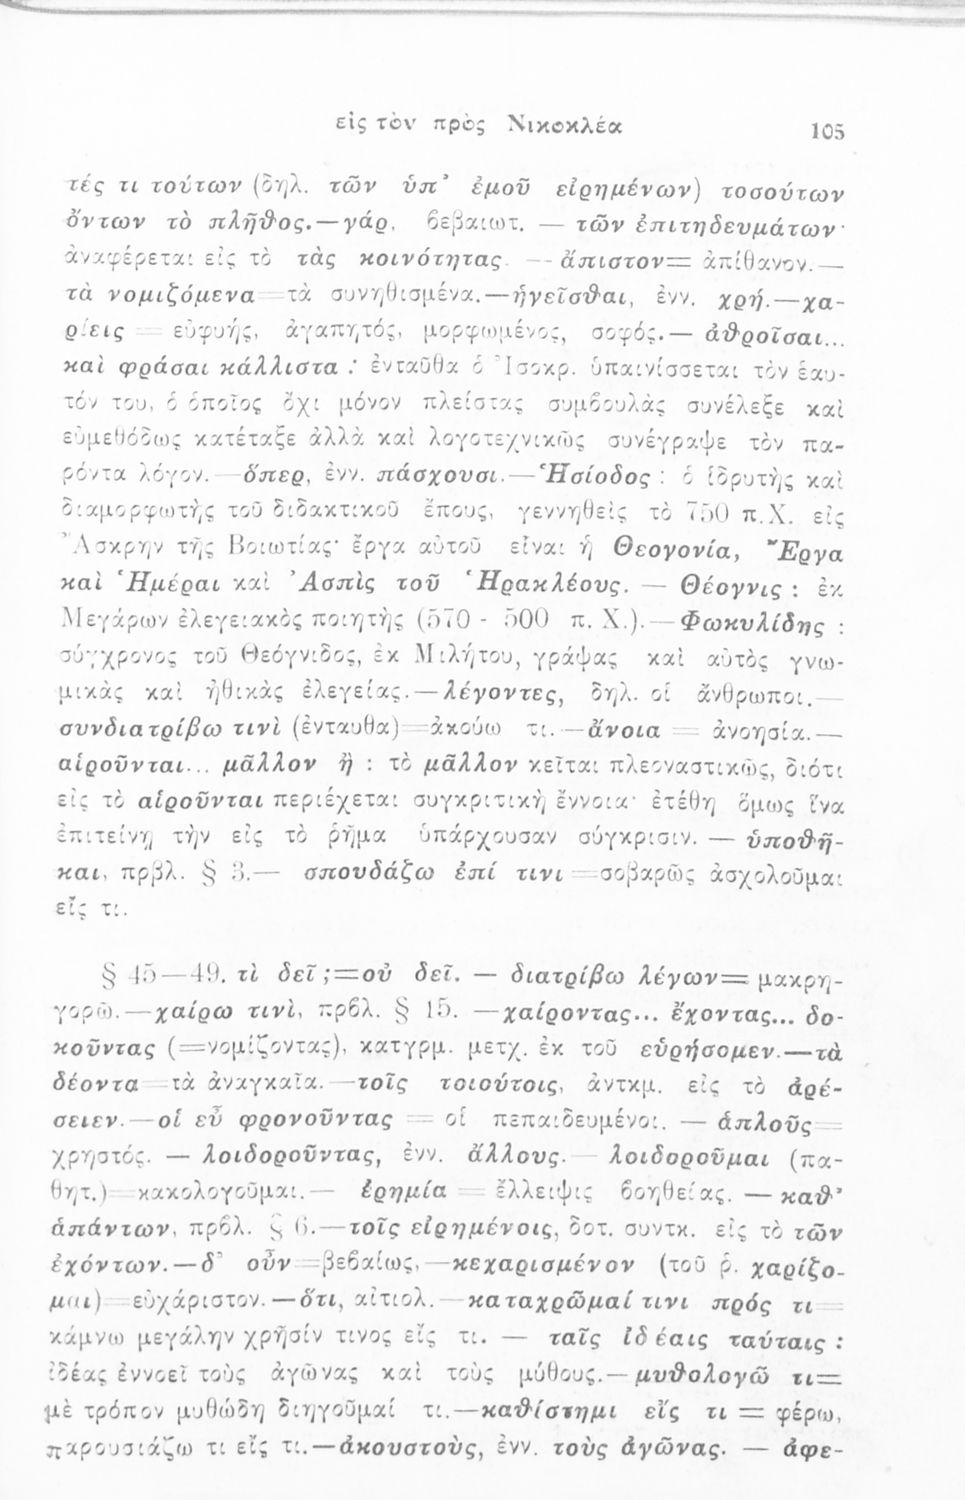 εἰς τὸν πρὸς Νικοκλέα
105
τές τι τούτων (δηλ. τῶν ὑπ᾽ ἐμοῦ εἰρημένων) τοσούτων
ὄντων τὸ πλῆθος.—γάρ, βεβαιωτ. — τῶν ἐπιτηδευμάτων·
ἀναφέρεται εἰς τὸ τὰς κοινότητας. — ἄπιστον= ἀπίθανον.—
τὰ νομιζόμενα=τὰ συνηθισμένα.—ἡγεῖσθαι, ἐνν. χρή.—χα-
ρίεις = εὐφυής, ἀγαπητός, μορφωμένος, σοφός.— ἀθροῖσαι...
καὶ φράσαι κάλλιστα : ἐνταῦθα ὁ Ἰσοκρ. ὑπαινίσσεται τὸν ἑαυ-
τόν του, ὁ ὁποῖος ὄχι μόνον πλείστας συμβουλὰς συνέλεξε καὶ
εὐμεθόδως κατέταξε ἀλλὰ καὶ λογοτεχνικῶς συνέγραψε τὸν πα-
ρόντα λόγον.—ὅπερ, ἐνν. πάσχουσι.—Ἡσίοδος : ὁ ἱδρυτὴς καὶ
διαμορφωτὴς τοῦ διδακτικοῦ ἔπους, γεννηθεὶς τὸ 750 π.Χ. εἰς
Ἄσκρην τῆς Βοιωτίας· ἔργα αὐτοῦ εἶναι ἡ Θεογονία, Ἔργα
καὶ Ἡμέραι καὶ Ἀσπὶς τοῦ Ἡρακλέους. — Θέογνις : ἐκ
Μεγάρων ἐλεγειακὸς ποιητὴς (570 - 500 π. Χ.).—Φωκυλίδης :
σύγχρονος τοῦ Θεόγνιδος, ἐκ Μιλήτου, γράψας καὶ αὐτὸς γνω-
μικὰς καὶ ἠθικὰς ἐλεγείας.—λέγοντες, δηλ. οἱ ἄνθρωποι.—
συνδιατρίβω τινὶ (ἐνταυθα)=ἀκούω τι.—ἄνοια = ἀνοησία.—
αἱροῦνται... μᾶλλον ἢ : τὸ μᾶλλον κεῖται πλεοναστικῶς, διότι
εἰς τὸ αἱροῦνται περιέχεται συγκριτικὴ ἔννοια· ἐτέθη ὅμως ἵνα
ἐπιτείνῃ τὴν εἰς τὸ ρῆμα ὑπάρχουσαν σύγκρισιν. — ὑποθῆ-
και, πρβλ. § 3.— σπουδάζω ἐπί τινι=σοβαρῶς ἀσχολοῦμαι
εἴς τι.
§ 45—49. τὶ δεῖ ;=οὐ δεῖ. — διατρίβω λέγων= μακρη-
γορῶ.—χαίρω τινὶ, πρβλ. § 15. —χαίροντας... ἔχοντας... δο-
κοῦντας (=νομίζοντας), κατγρμ. μετχ. ἐκ τοῦ εὑρήσομεν.—τὰ
δέοντα=τὰ ἀναγκαῖα.—τοῖς τοιούτοις, ἀντκμ. εἰς τὸ ἀρέ-
σειεν.—οἱ εὖ φρονοῦντας = οἱ πεπαιδευμένοι. — ἁπλοῦς=
χρηστός. — λοιδοροῦντας, ἐνν. ἄλλους.— λοιδοροῦμαι (πα-
θητ.)=κακολογοῦμαι.— ἐρημία = ἔλλειψις βοηθείας. — καθ᾽
ἁπάντων, πρβλ. § 6.—τοῖς εἰρημένοις, δοτ. συντκ. εἰς τὸ τῶν
ἐχόντων.—δ᾽ οὖν=βεβαίως.—κεχαρισμένον (τοῦ ρ. χαρίζο-
μαι)=εὐχάριστον.—ὅτι, αἰτιολ.—καταχρῶμαί τινι πρός τι=
κάμνω μεγάλην χρῆσίν τινος εἴς τι. — ταῖς ἰδέαις ταύταις :
ἰδέας ἐννοεῖ τοὺς ἀγῶνας καὶ τοὺς μύθους.—μυθολογῶ τι=
μὲ τρόπον μυθώδη διηγοῦμαί τι.—καθίστημι εἴς τι = φέρω,
παρουσιάζω τι εἴς τι.—ἀκουστοὺς, ἐνν. τοὺς ἀγῶνας. — ἀφε-